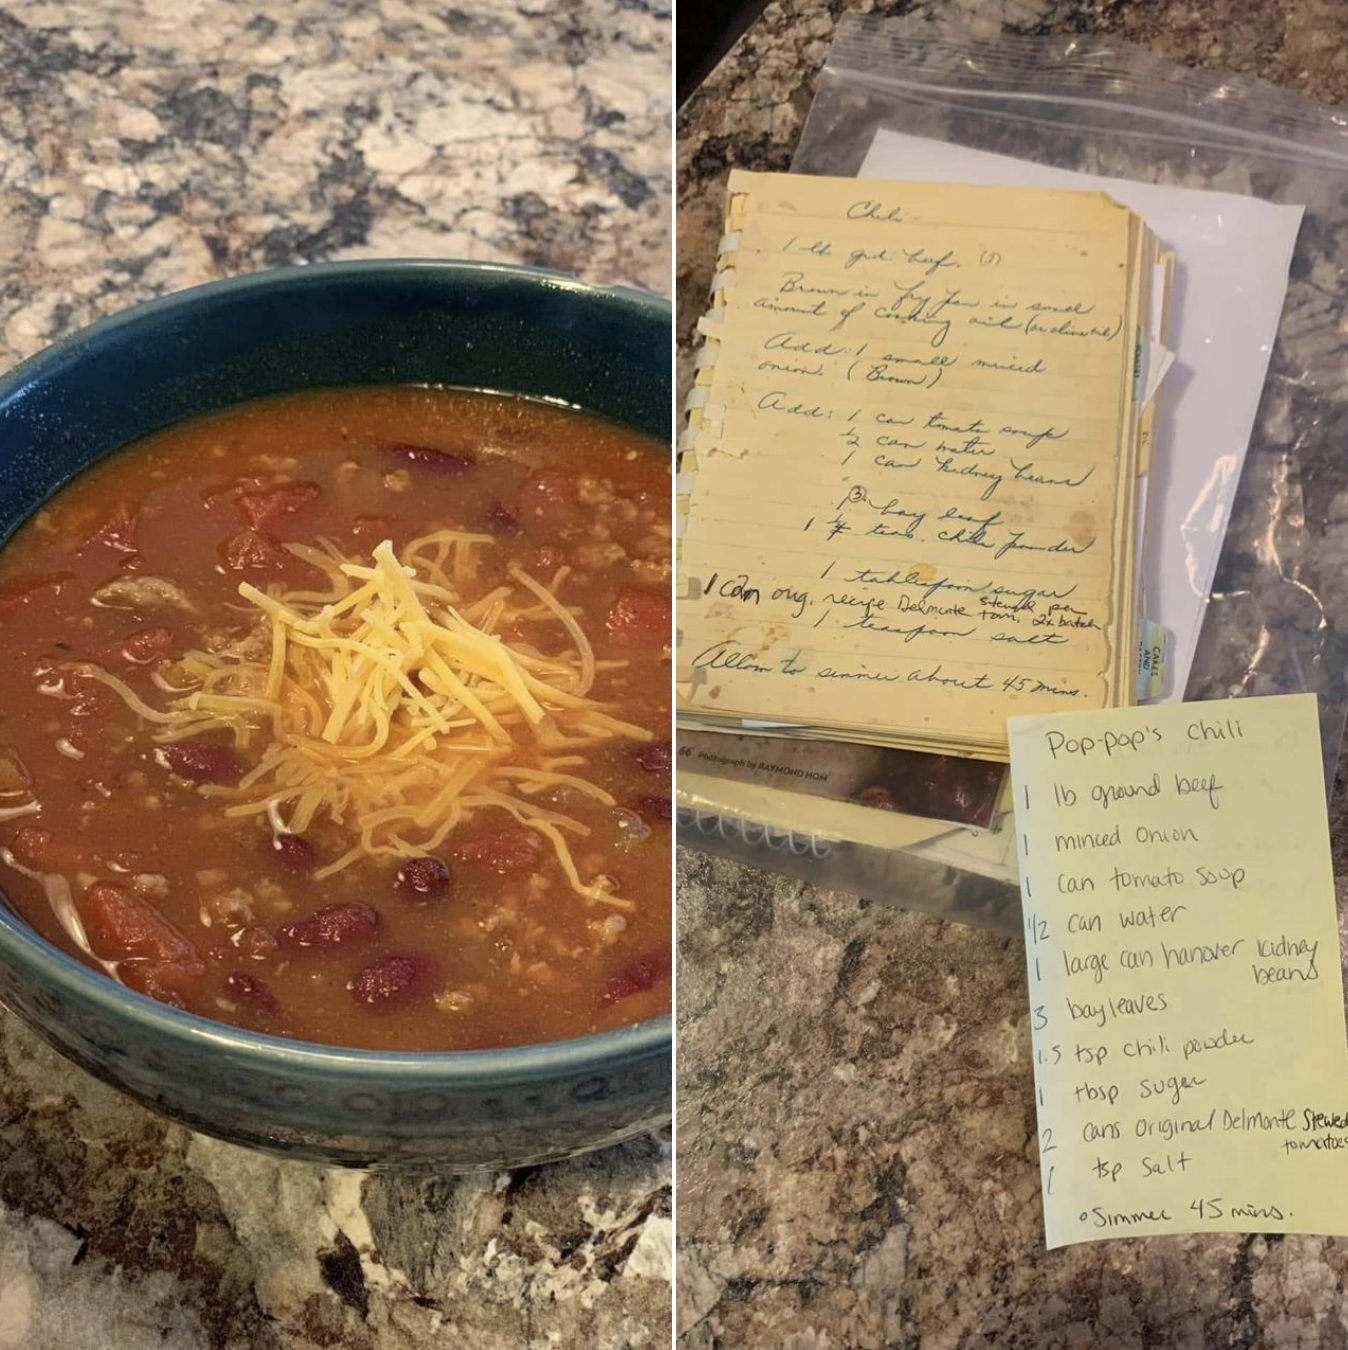 Chili
1 lb. grd. beef. (5)
Brown in fry pan in small
amount of cooking oil (or olive oil)
Add: 1 small minced
onion. (Brown)
Add: 1 can tomato soup
1/2 can water
1 can kidney beans
3 bay leaf
1 teas. chili powder
1 tablespoon sugar
1 can orig. recipe Delmonte stewed tom. per 2x batch
1 teaspoon salt
Allow to simmer about 45 mins.
CAKES
AND
66 Photograph by RAYMOND HOM
Pop-pop's Chili
1 lb ground beef
1 minced onion
1 can tomato soup
1/2 can water
1 large can hanover kidney
beans
3 bay leaves
1.5 tsp chili powder
1 tbsp suger
2 cans original Delmonte Stewed
tomatoes
1 tsp Salt
°Simmer 45 mins.